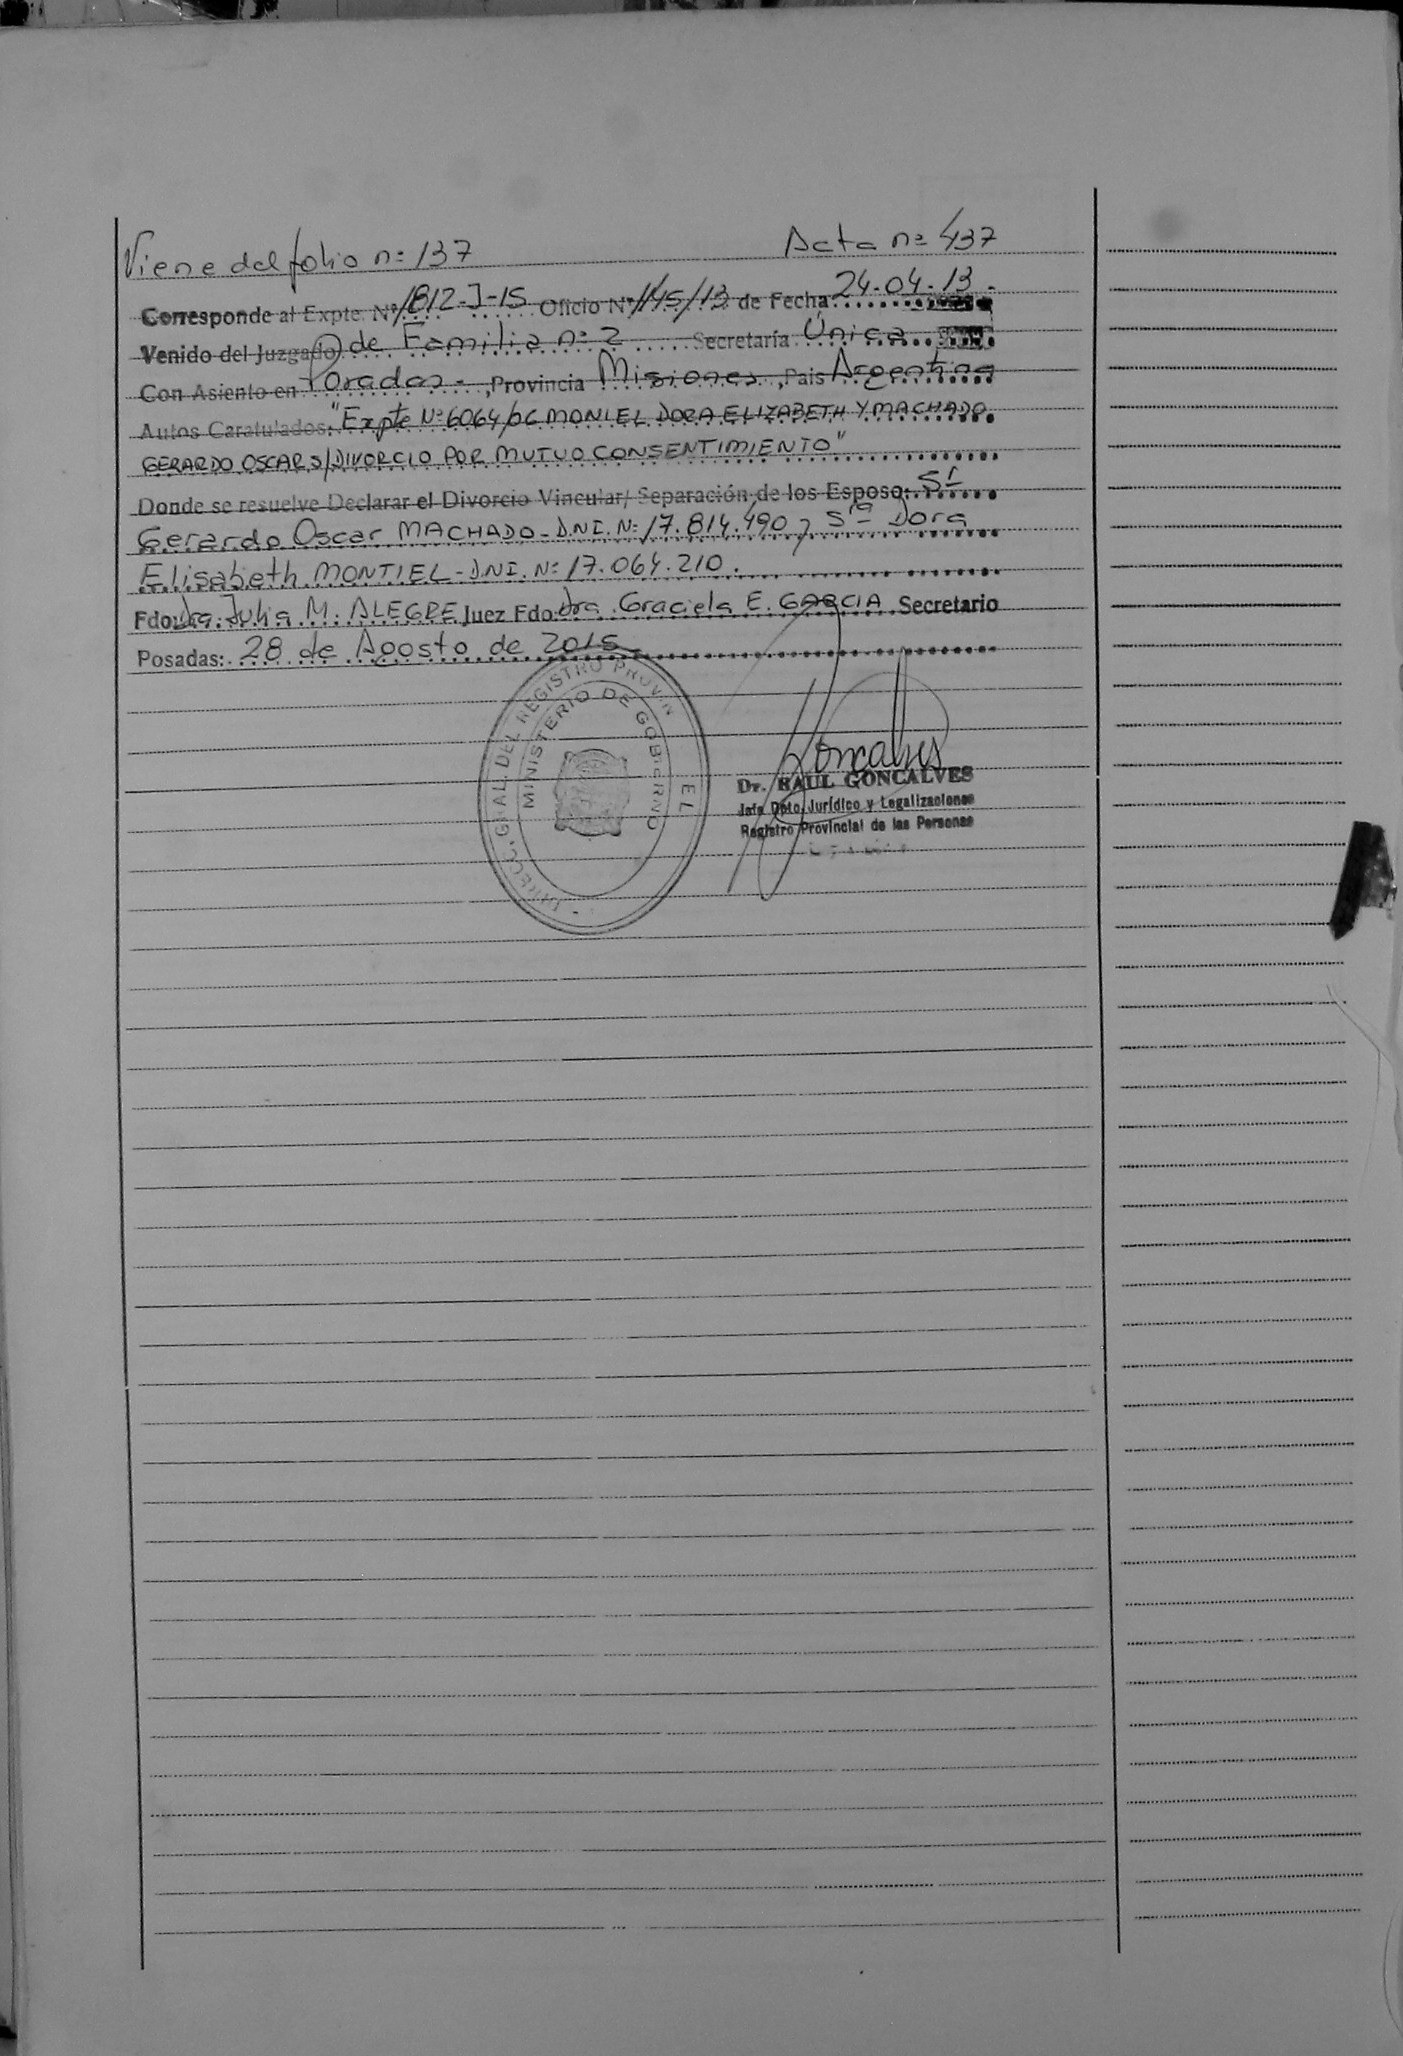 Viene del folio nº 137 Acta nº 437
Corresponde al Expte Nº 1812-J-15 Oficio Nº 1145/13 de Fecha 24-04-13.
Venido del Juzgado de Familia nº 2 Secretaría Única
Con Asiento en Posadas, Provincia Misiones, Pais Argentina
Autos Caratulados: "Expte Nº 6064/06 MONIEL DORA ELIZABETH Y MACHADO
GERARDO OSCAR S/DIVORCIO POR MUTUO CONSENTIMIENTO"
Donde se resuelve Declarar el Divorcio Vincular/ Separación de los Esposo: Sr
Gerardo Oscar MACHADO - D.N.I. Nº 17.814.490 y Sra Dora
Elisabeth MONTIEL - D.N.I. Nº 17.064.210.
Fdo: Dra. Julia M. ALEGRE Juez Fdo. Dra. Graciela E. GARCIA Secretario
Posadas: 28 de Agosto de 2015
DIRECC. GRAL. DEL REGISTRO PROVIN
MINISTERIO DE GOBIERNO
Goncalves
Dr. RAUL GONCALVES
Jefe Dpto. Jurídico y Legalizaciones
Registro Provincial de las Personas